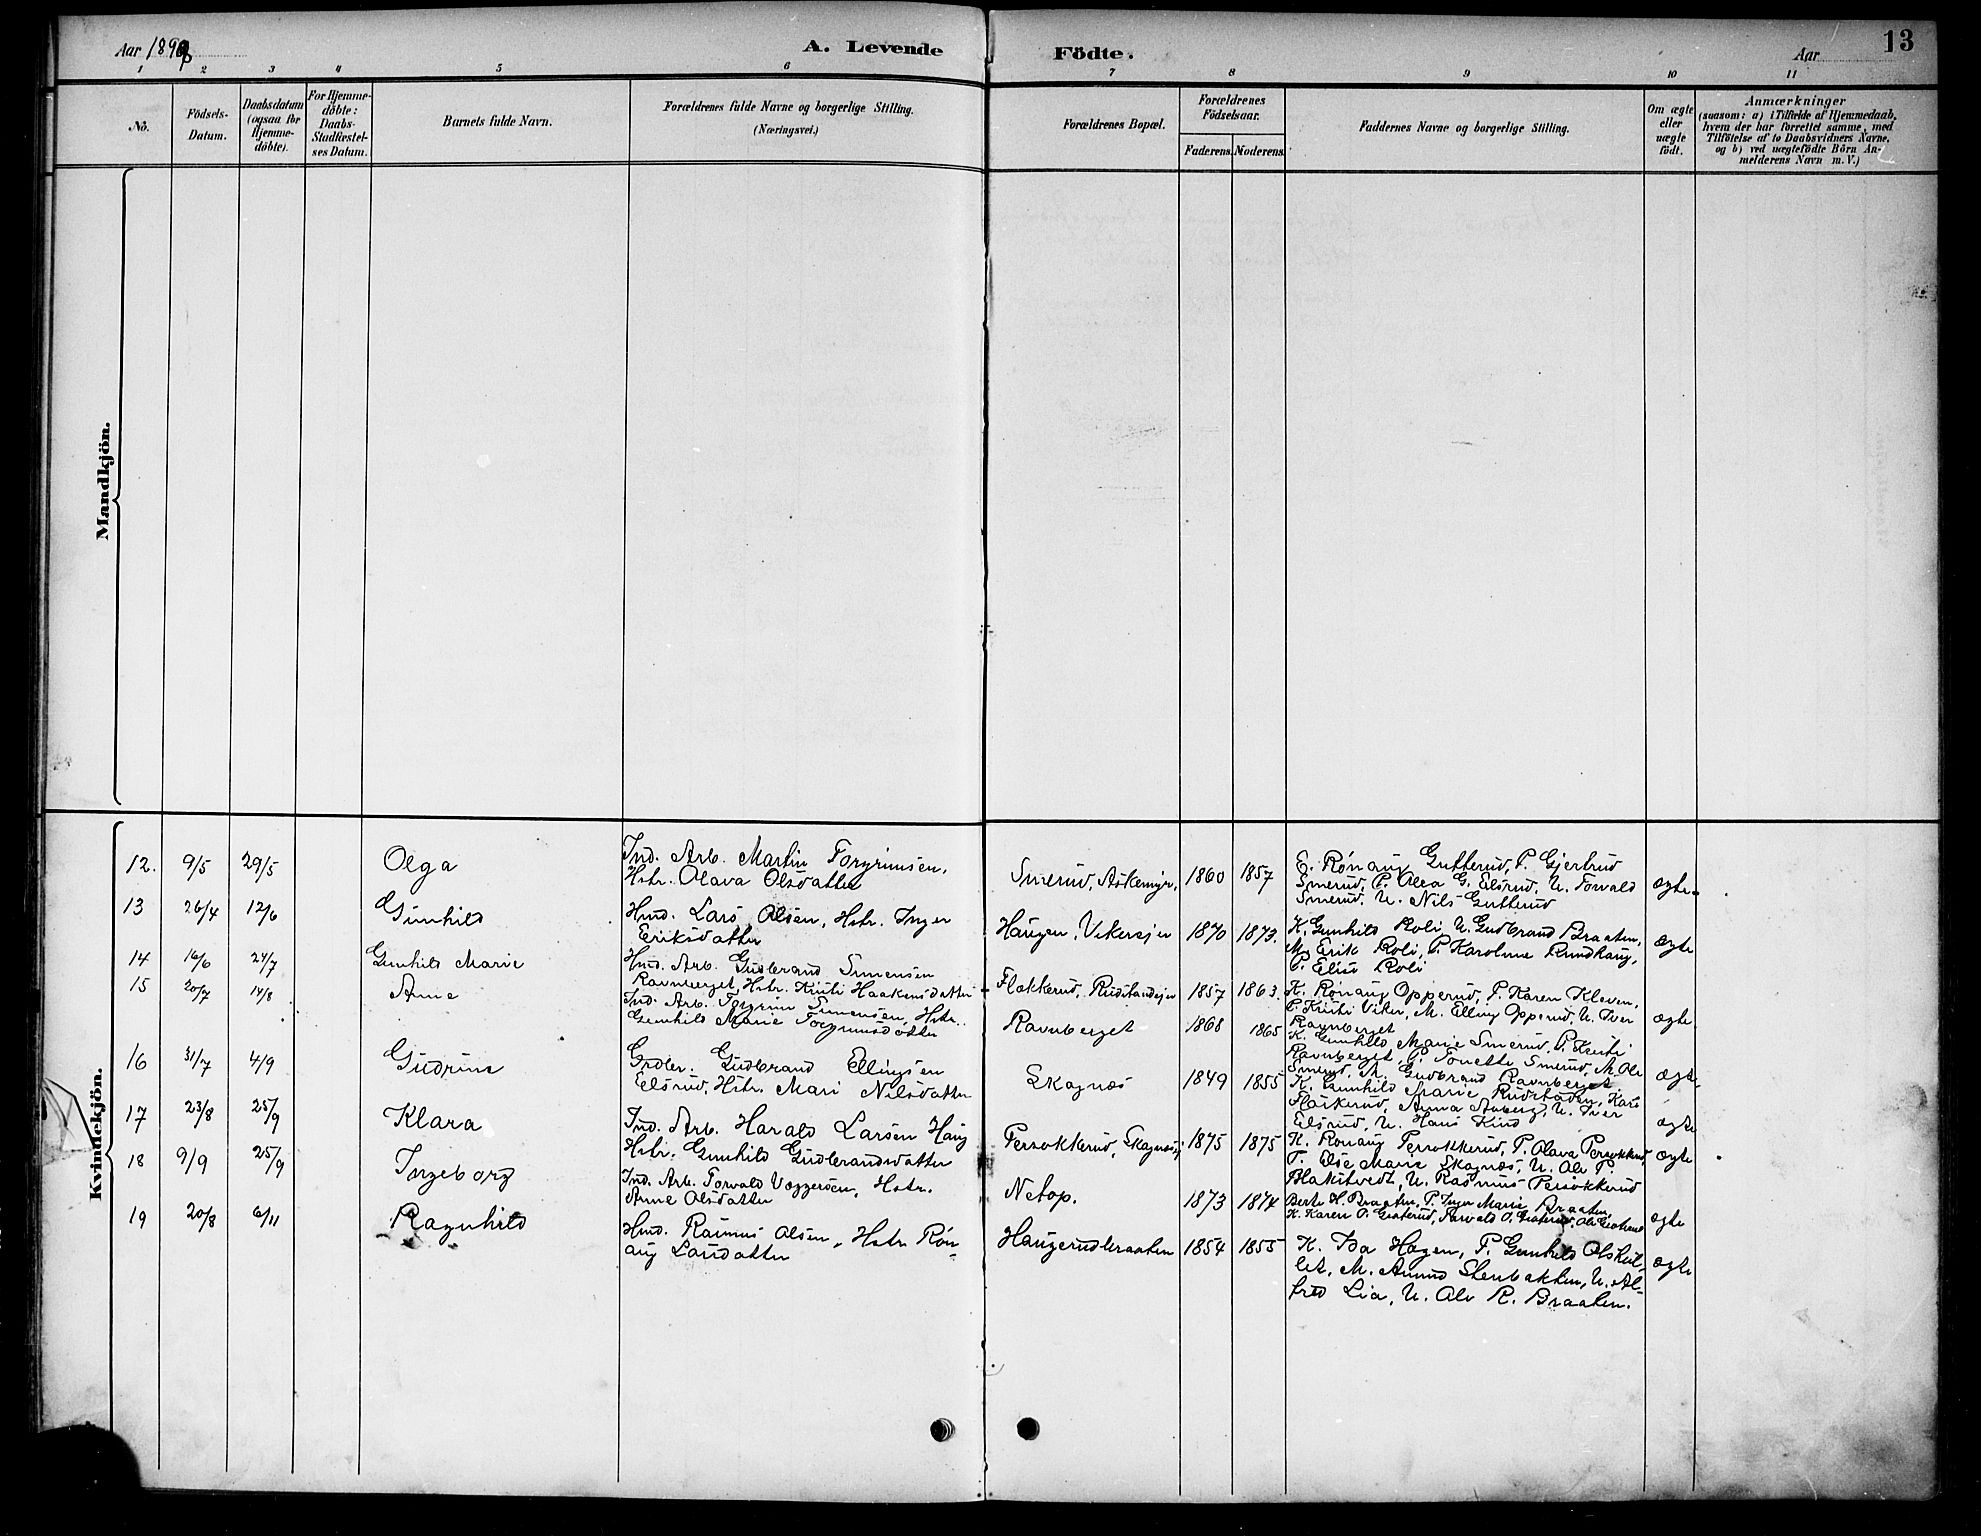 Aar 1898
A. Levende
Födte.
Aar
13
1 2 3 4 5 6 7 8 9 10 11
No.
Födsels-
Datum.
Daabsdatum
(ogsaa for
Hjemme-
döbte).
For Hjemme-
döbte:
Daabs-
Stadfæstel-
ses Datum.
Barnets fulde Navn.
Forældrenes fulde Navne og borgerlige Stilling.
(Næringsvei.)
Forældrenes Bopæl.
Forældrenes
Födselsaar.
Faderens. Moderens.
Faddernes Navne og borgerlige Stilling.
Om ægte
eller
uægte
födt.
Anmærkninger
(saasom: a) i Tilfælde af Hjemmedaab,
hvem der har forrettet samme, med
Tilföielse af to Daabsvidners Navne,
og b) ved uægtefödte Börn An-
melderens Navn m. V.)
Mandkjön.
Kvindekjön.
12. 9/5 29/5 Olga
Ind. Arb. Martin Torgrimsen,
Hstr. Olava Olsdatter
Smerud, Askemyr, 1860 1857
E. Rønaug Gutterud, P. Gjertrud
Smerud, P. Olea G. Elsrud, U. Torvald
Smerud, U. Nils Gutterud
ægte
13 26/4 12/6 Gunhild
Hmd. Lars Olsen, Hstr. Inger
Eriksdatter
Haugen, Vikersejer 1870 1873.
K. Gunhild Roli, U. Gudbrand Braaten,
M. Erik Roli, P. Karoline Rundhaug,
P. Elise Roli
ægte
14 16/6 24/7 Gunhild Marie
Hmd. Arb. Gudbrand Simensen
Ravnberget, Hstr. Kristi Haakensdatter
Flakkerud, Rudstandejer 1857 1863.
K. Rønaug Opperud, P. Karen Kleven,
P. Kristi Viker, M. Elling Opperud, U. Iver
Ravnberget
ægte
15 20/7 14/8 Anne
Ind. Arb. Torgrim Simensen, Hstr.
Gunhild Marie Torgrimsdatter
Ravnberget 1868 1865
K. Gunhild Marie Smerud, P. Kristi
Ravnberget, P. Tonette Smerud, M. Ole
Smerud, M. Gudbrand Ravnberget
ægte
16 31/7 4/9 Gudrine
Grdbr. Gudbrand Ellingsen
Elsrud, Hstr. Mari Nilsdatter
Skagnæs 1849 1855
K. Gunhild Marie Rudstaden, Kari
Flaskerud, Anna Aaberg, U. Iver
Elsrud, U. Hans Kind
ægte
17 23/8 25/9 Klara
Ind. Arb. Harald Larsen Haug
Hstr. Gunhild Gudbrandsdatter
Persokkerud, 1875 1875
K. Rønaug Persokkerud, P. Olava Persokkerud
P. Else Marie Skagnæs, U. Ole P.
Blakstvedt, U. Rasmus Persokkerud
ægte
18 9/9 25/9 Ingeborg
Ind. Arb. Torvald Vaggersen, Hstr.
Anne Olsdatter
Netop. 1873 1874
Berte H. Braaten, P. Inger Marie Braaten,
ægte
19 20/8 6/11 Ragnhild
Hmd. Rasmus Olsen, Hstr. Røn-
aug Larsdatter
Haugerudbraaten 1854 1855
K. Ida Hagen, P. Gunhild
M. Amund Stenbakken, U. Al-
fred Lia, U. Ole R. Braaten.
ægte